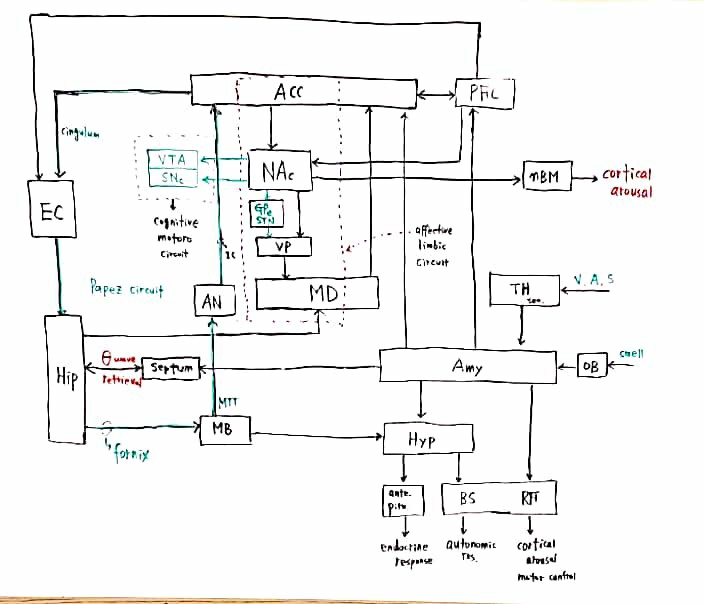 ACC
PFC
cingulum
VTA
SNc
NAc
nBM
cortical
arousal
EC
GPe
STN
cognitive
motoro
circuit
VP
affective
limbic
circuit
IC
Papez circuit
AN
MD
TH
sen.
V. A. S
Hip
θ wave
retrieval
Septum
Amy
OB
smell
MTT
MB
fornix
Hyp
ante.
pitu
BS
RF
endocrine
response
autonomic
res.
cortical
arousal
motor control